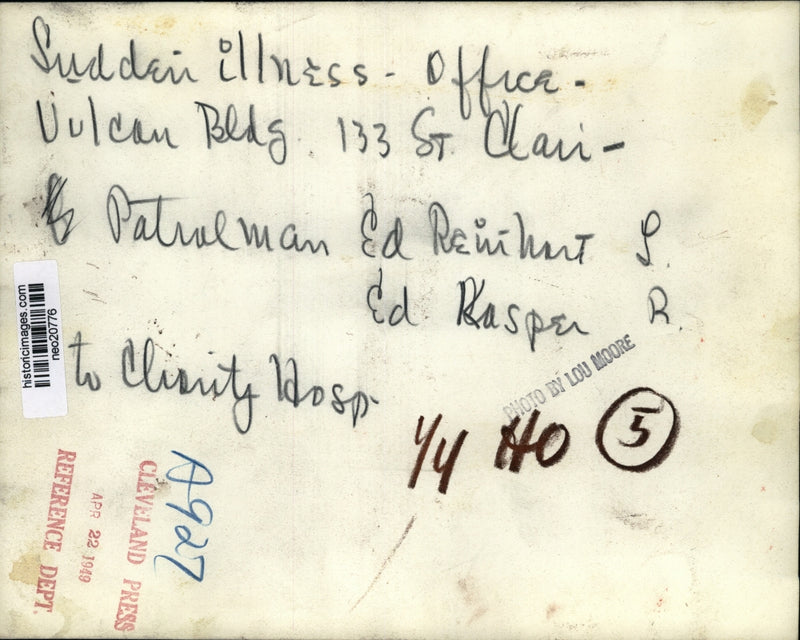 Sudden illness - Office -
Vulcan Bldg. 133 St. Clair -
Patrolman Ed Reinhart L.
Ed Kasper R.
to Charity Hosp.
PHOTO BY LOU MOORE
1/4 HO 5
historicimages.com
neo20776
A927
CLEVELAND PRESS
APR 22 1949
REFERENCE DEPT.